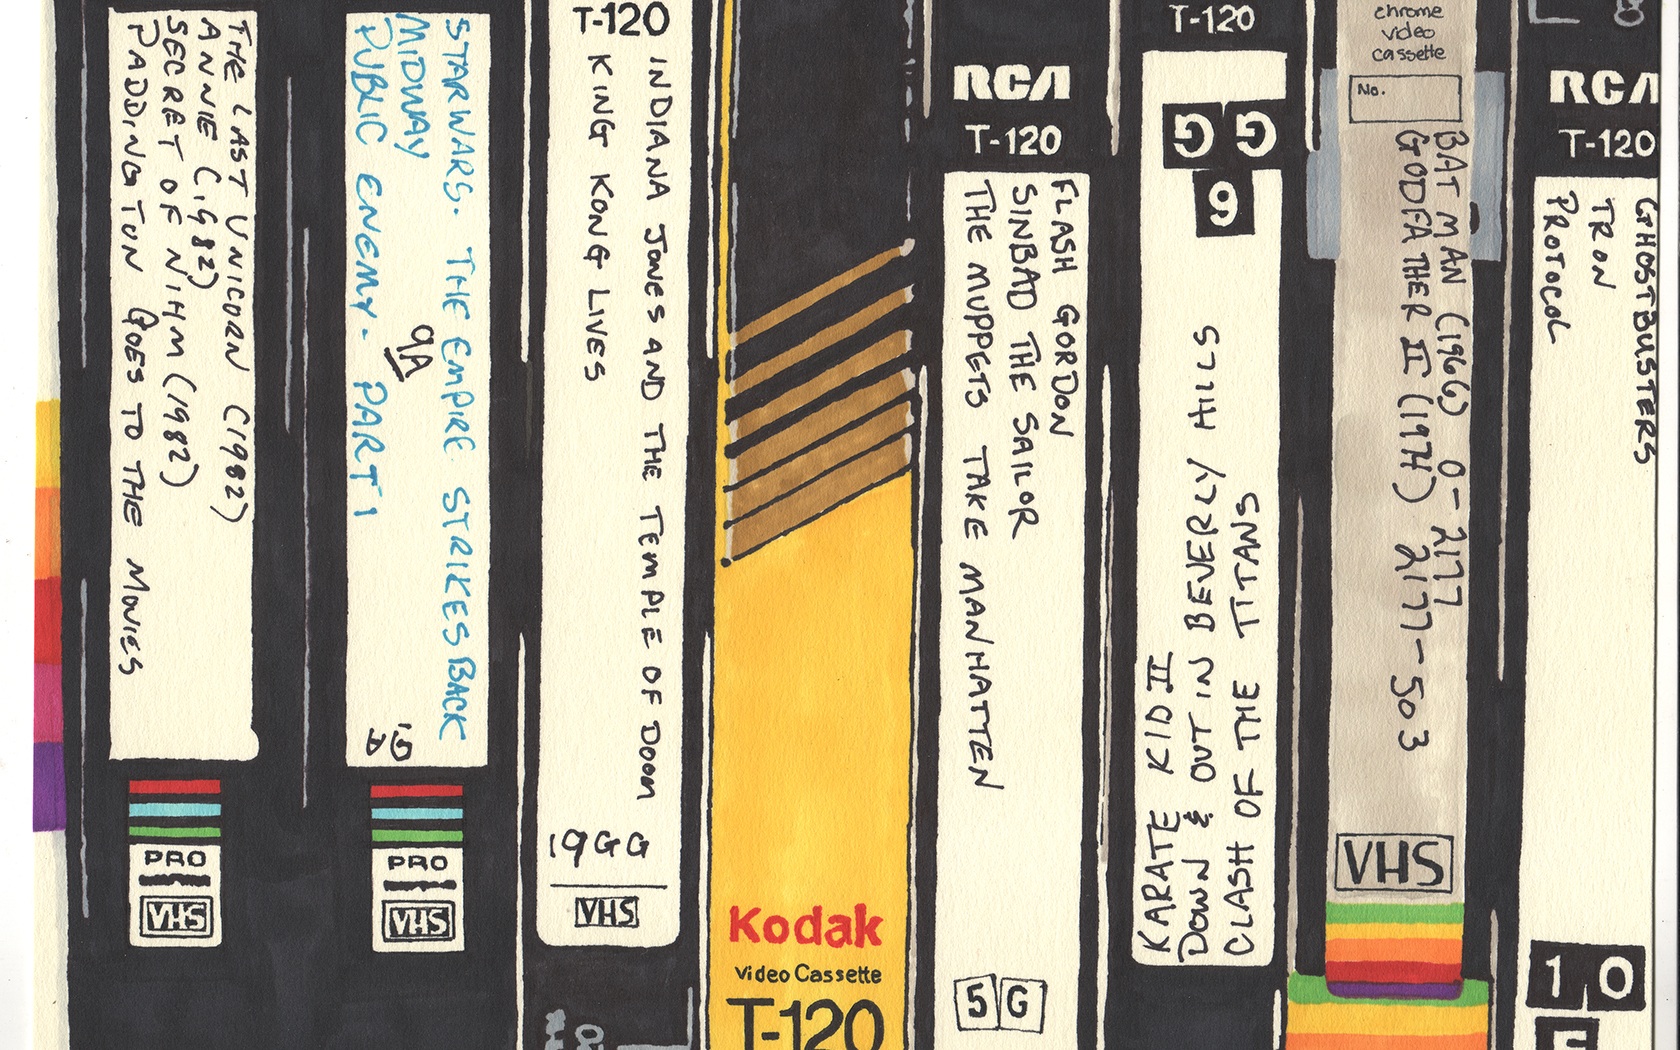 THE LAST UNICORN (1982)
ANNIE (1982)
SECRET OF NIHM (1982)
PADDINGTON GOES TO THE MOVIES
PRO
VHS
STARWARS. THE EMPIRE STRIKES BACK
MIDWAY
PUBLIC ENEMY - PART 1
9A
PRO
VHS
T-120
INDIANA JONES AND THE TEMPLE OF DOOM
KING KONG LIVES
19GG
VHS
Kodak
Video Cassette
T-120
RCA
T-120
FLASH GORDON
SINBAD THE SAILOR
THE MUPPETS TAKE MANHATTEN
5G
T-120
GG
9
KARATE KID II
DOWN & OUT IN BEVERLY HILLS
CLASH OF THE TITANS
chrome
video
cassette
No.
BAT MAN (1966) 0-2177
GODFATHER II (197H) 2177-503
VHS
RCA
T-120
GHOSTBUSTERS
TRON
PROTOCOL
10